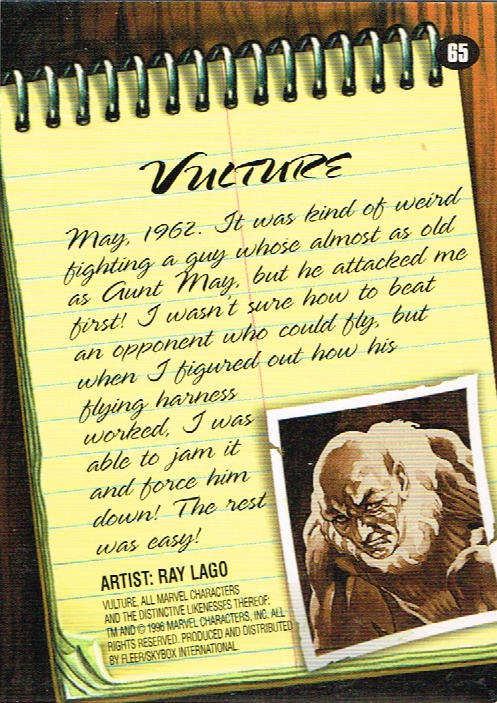 65
VULTURE
May, 1962. It was kind of weird
fighting a guy whose almost as old
as Aunt May, but he attacked me
first! I wasn't sure how to beat
an opponent who could fly, but
when I figured out how his
flying harness
worked, I was
able to jam it
and force him
down! The rest
was easy!
ARTIST: RAY LAGO
VULTURE, ALL MARVEL CHARACTERS
AND THE DISTINCTIVE LIKENESSES THEREOF:
TM AND © 1996 MARVEL CHARACTERS, INC. ALL
RIGHTS RESERVED. PRODUCED AND DISTRIBUTED
BY FLEER/SKYBOX INTERNATIONAL